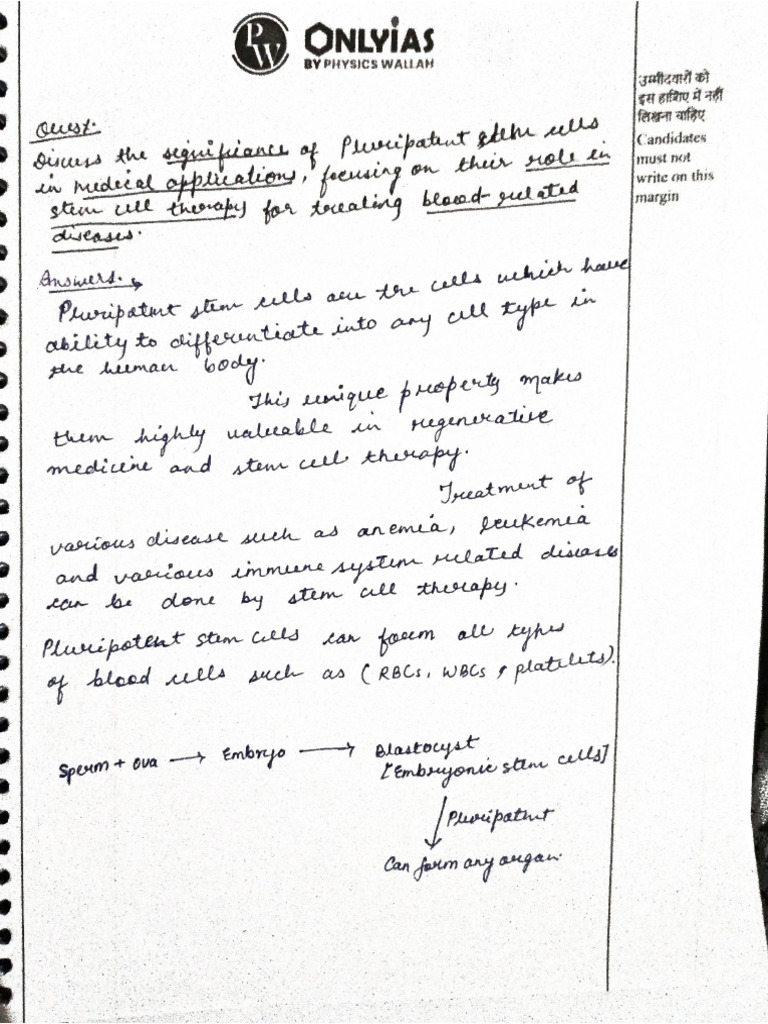 PW
ONLYIAS
BY PHYSICS WALLAH
उम्मीदवारों को
इस हाशिए में नहीं
लिखना चाहिए
Candidates
must not
write on this
margin
Quest.
Discuss the significance of Pluripatent stem cells
in medical applications, focusing on their role in
stem cell therapy for treating blood-related
diseases.
Answers.
Pluripatent stem cells are the cells which have
ability to differentiate into any cell type in
the human body.
This unique property makes
them highly valuable in regenerative
medicine and stem cell therapy.
Treatment of
various disease such as anemia, leukemia
and various immune system related diseases
can be done by stem cell therapy.
Pluripotent stem cells can form all types
of blood cells such as (RBCs, WBCs, platelets).
Sperm + Ova → Embryo → Blastocyst
[Embryonic stem cells]
↓ Pluripatent
Can form any organ.